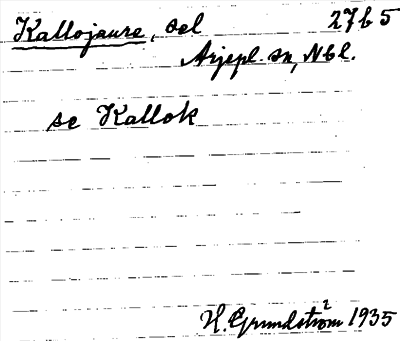 Kallojaure, del 27b5
Arjepl. sn, Nbl.
se Kallok
H. Grundström 1935